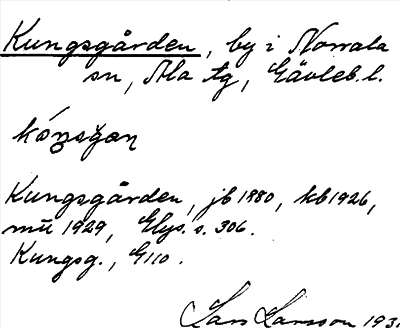 Kungsgården, by i Norrala
sn, Ala tg, Gävleb. l.
kóŋsgan
Kungsgården, jb 1880, kb 1926,
mü 1929, Elys. s. 306.
Kungsg., G110.
Lars Larsson 193